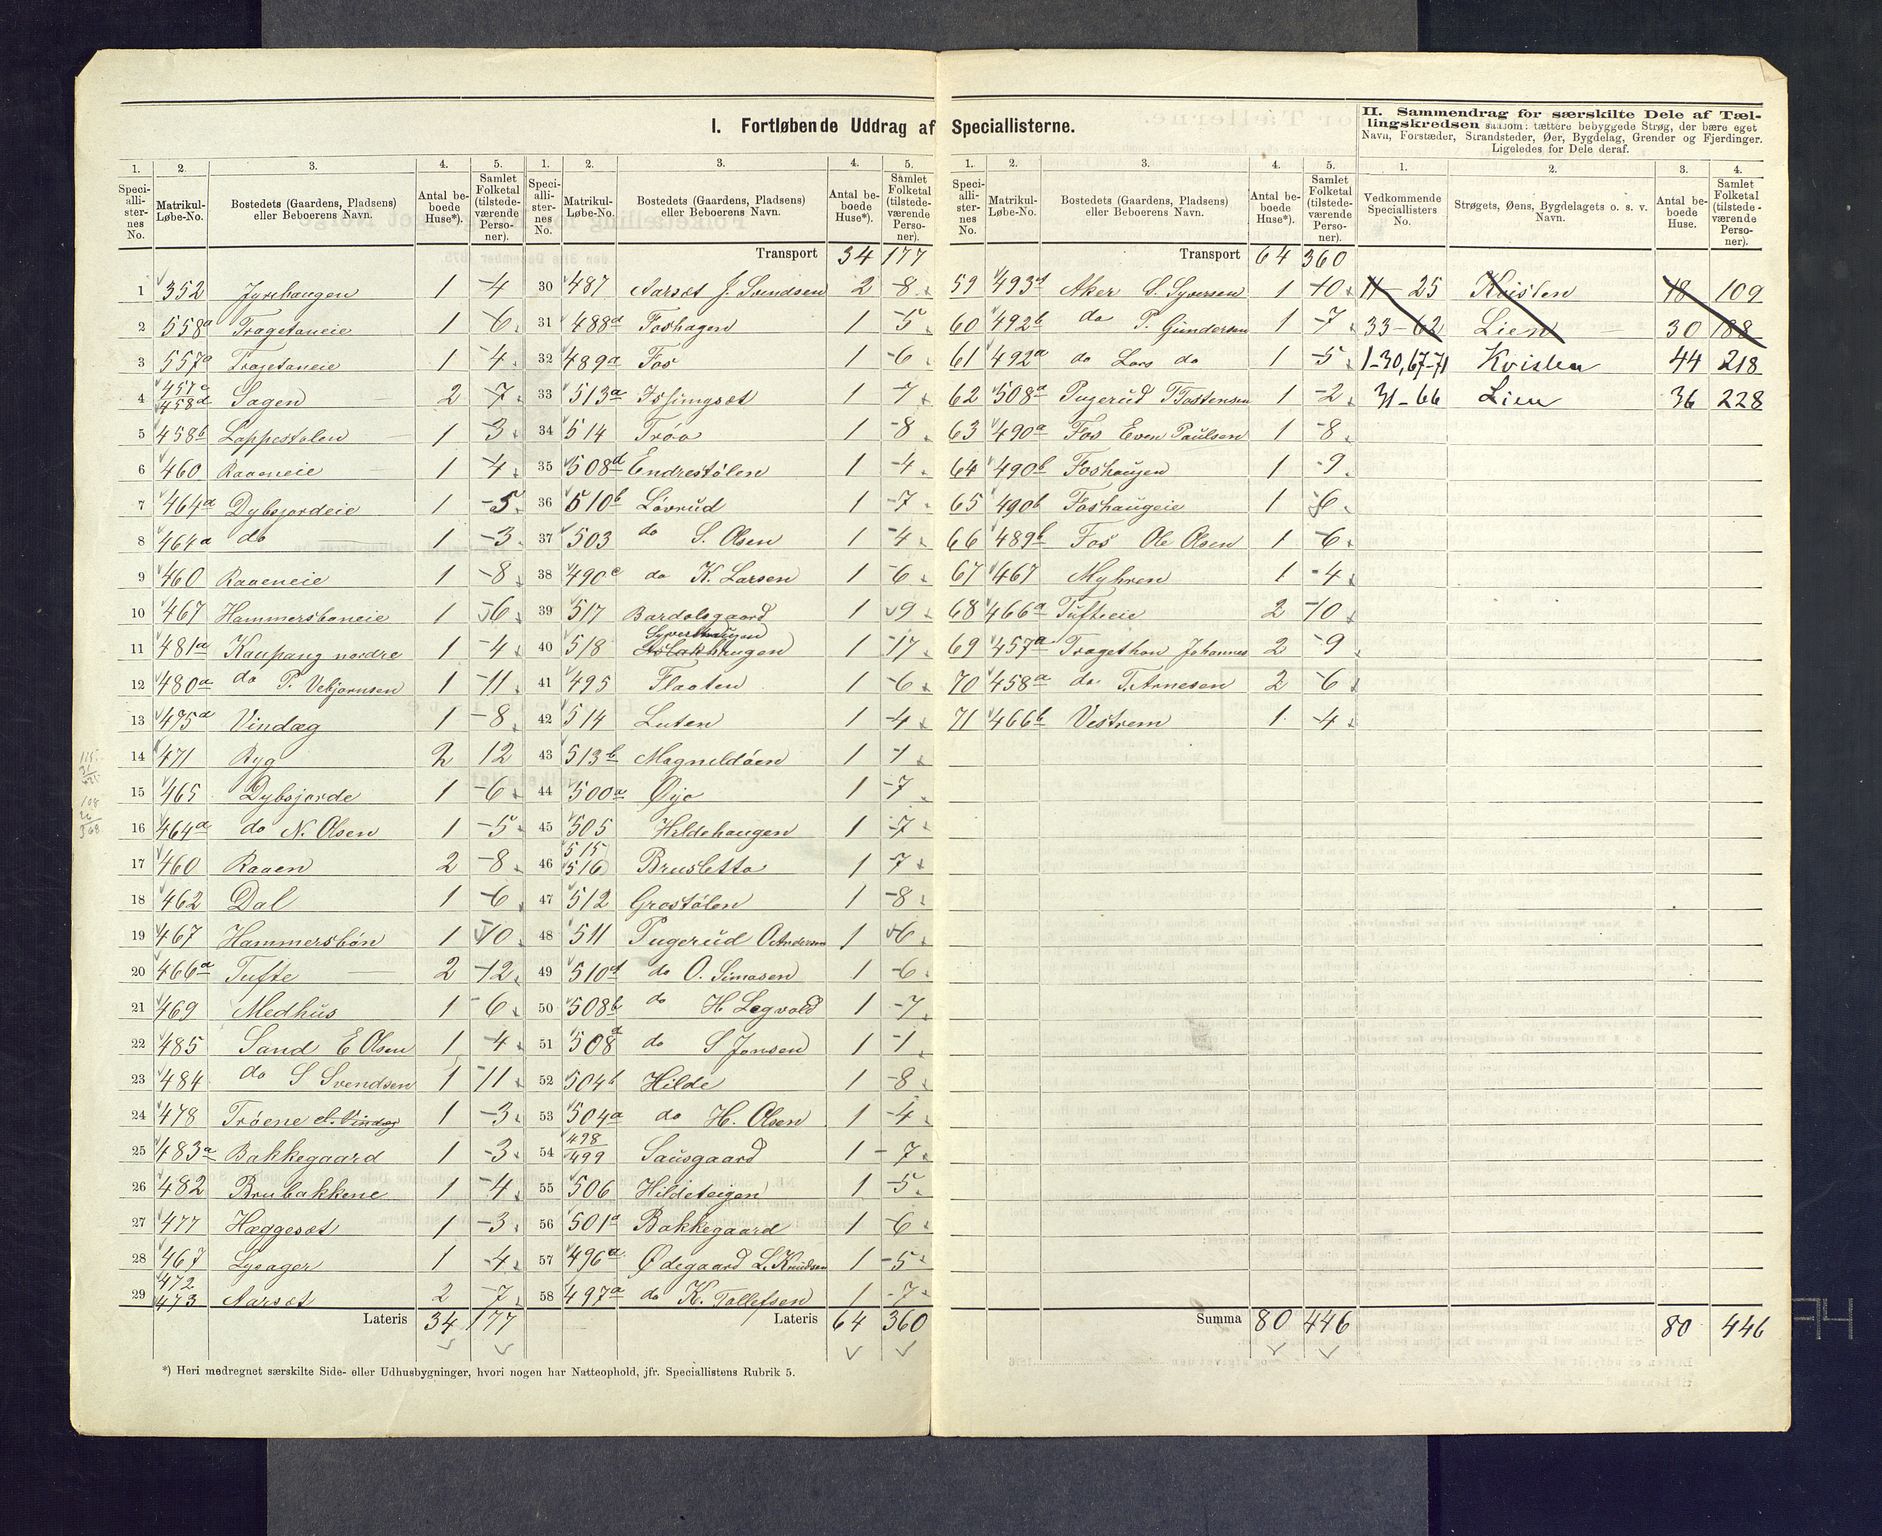 I. Fortløbende Uddrag af Speciallisterne.
II. Sammendrag for særskilte Dele af Tællingskredsen saasom: tættere bebyggede Strøg, der bære eget
Navn, Forstæder, Strandsteder, Øer, Bygdelag, Grender og Fjerdinger.
Ligeledes for Dele deraf.
1. 2. 3. 4. 5.
Speciallisternes No. Matrikul-Løbe-No. Bostedets (Gaardens, Pladsens) eller Beboerens Navn. Antal beboede Huse*). Samlet Folketal (tilstedeværende Personer).
1 352 Jyrihaugen 1 4
2 558a Tragetoneie 1 6
3 557a Tragetoneie 1 4
4 457c 458d Sagen 2 7
5 458b Loppestølen 1 3
6 460 Raaeneie 1 4
7 464a Dybsjordeie 1 5
8 464a do 1 3
9 460 Raaeneie 1 8
10 467 Hammersbøneie 1 6
11 481a Kaupang nordre 1 4
12 480a do P. Vebjørnsen 1 11
13 475a Vindæg 1 8
14 471 Byg 2 12
15 465 Dybsjorde 1 6
16 464a do N. Olsen 1 5
17 460 Raaen 2 8
18 462 Dal 1 6
19 467 Hammersbøn 1 10
20 466a Tufte 2 12
21 469 Medhus 1 6
22 485 Sand E Olsen 1 4
23 484 do S Svendsen 1 11
24 478 Trøene 1 3
25 483a Bakkegaard 1 3
26 482 Brubakkene 1 4
27 477 Hæggesæt 1 3
28 467 Lysager 1 4
29 472 473 Aarsæt 2 7
Lateris 34 177
*) Heri medregnet særskilte Side- eller Udhusbygninger, hvori nogen har Natteophold, jfr. Speciallistens Rubrik 5.
1. 2. 3. 4. 5.
Speciallisternes No. Matrikul-Løbe-No. Bostedets (Gaardens, Pladsens) eller Beboerens Navn. Antal beboede Huse*). Samlet Folketal (tilstedeværende Personer).
Transport 34 177
30 487 Aarsæt J. Svendsen 2 8
31 488a Foshagen 1 5
32 489a Fos 1 6
33 513a 1 7
34 514 Trøo 1 8
35 508d Endrestølen 1 4
36 510b Løvrud 1 7
37 503 do S. Olsen 1 4
38 490c do K. Larsen 1 6
39 517 Bardolsgaard 1 9
40 518 Syverhaugen 1 17
41 495 Flaaten 1 6
42 514 Luten 1 4
43 513b Magnildøen 1 1
44 500a Øijo 1 7
45 505 Hildehaugen 1 7
46 515 516 Brusletto 1 7
47 512 Grøstølen 1 8
48 511 Pugerud O Andersen 1 6
49 510d do O. Simosen 1 6
50 508b do H Legvold 1 7
51 508d do S Jonsen 1 1
52 504b Hilde 1 8
53 504a do H. Olsen 1 4
54 498 499 Sausgaard 1 7
55 506 Hildeteigen 1 5
56 501a Bakkegaard 1 6
57 496a Ødegaard L. Knudsen 1 5
58 497a do K. Tollefsen 1 7
Lateris 64 360
1. 2. 3. 4. 5.
Speciallisternes No. Matrikul-Løbe-No. Bostedets (Gaardens, Pladsens) eller Beboerens Navn. Antal beboede Huse*). Samlet Folketal (tilstedeværende Personer).
Transport 64 360
59 493d Aker S. Syversen 1 10
60 492b do P. Gundersen 1 7
61 492a do Lars do 1 5
62 508a Pugerud T Tostensen 1 2
63 490a Fos Even Paulsen 1 8
64 490b Foshaugen 1 9
65 490b Foshaugeie 1 6
66 489b Fos Ole Olsen 1 6
67 467 Myhren 1 4
68 466a Tufteie 2 10
69 457a Tragethon Johannes 2 9
70 458a do T. Arnesen 2 6
71 466b Vestrem 1 4
Summa 80 446
1. 2. 3. 4.
Vedkommende Speciallisters No. Strøgets, Øens, Bygdelagets o. s. v. Navn. Antal beboede Huse. Samlet Folketal (tilstedeværende Personer).
11 - 25 Kvislen 18 109
33-62 Lien 30 188
1-30,67-71 Kvislen 44 218
31-66 Lien 36 228
80 446